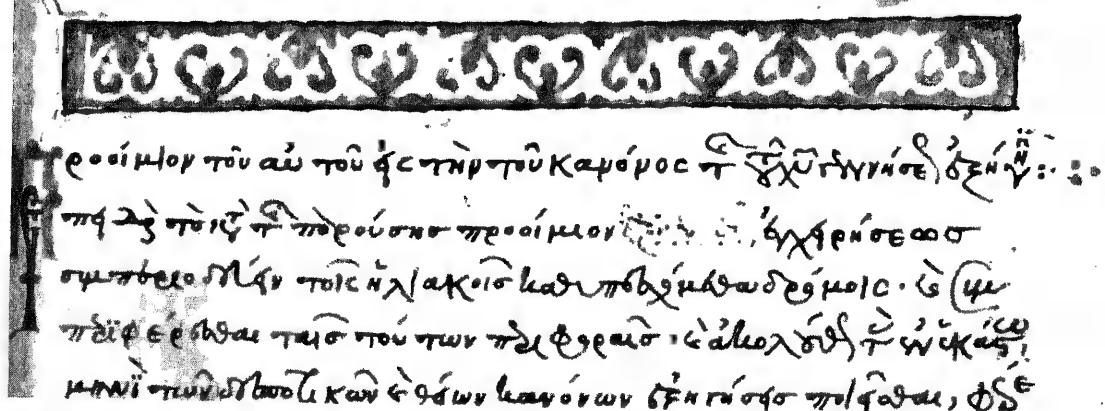 ροοίμιον τοῦ αὐτοῦ εἰς τὴν τοῦ κανόνος τῆς τοῦ χῦ γεννήσεως ἐξήγησιν:
τῆς παρούσης προοίμιον ἐγχειρήσεως
συμπεριοδεύειν τοῖς ἡλιακοῖς καθυποσχόμεθα δρόμοις· καὶ συμ
περιφέρεσθαι ταῖς τούτων περιφοραῖς· καὶ ἀκολούθως τῶν ἑκάστω
μηνὶ τῶν δεσποτικῶν καὶ θείων κανόνων ἐξηγήσεις ποιεῖσθαι,